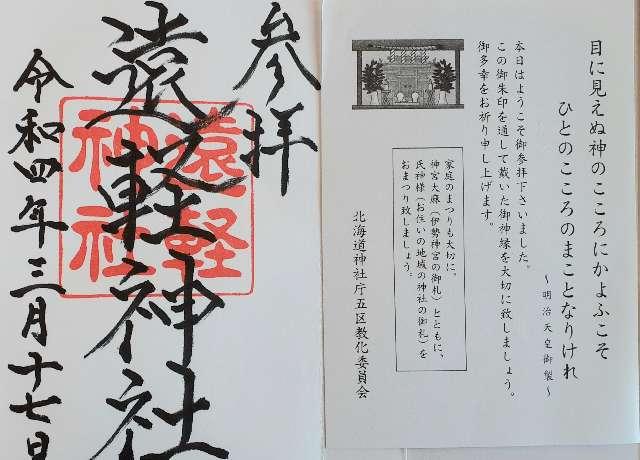 参拝
遠軽神社
遠軽
神社
令和四年三月十七日
目に見えぬ神のこころにかよふこそ
ひとのこころのまことなりけれ
~明治天皇御製~
本日はようこそ御参拝下さいました。
この御朱印を通して戴いた御神縁を大切に致しましょう。
御多幸をお祈り申し上げます。
家庭のまつりも大切に。
神宮大麻(伊勢神宮の御札)とともに、
氏神様(お住いの地域の神社の御札)を
おまつり致しましょう。
北海道神社庁五区教化委員会